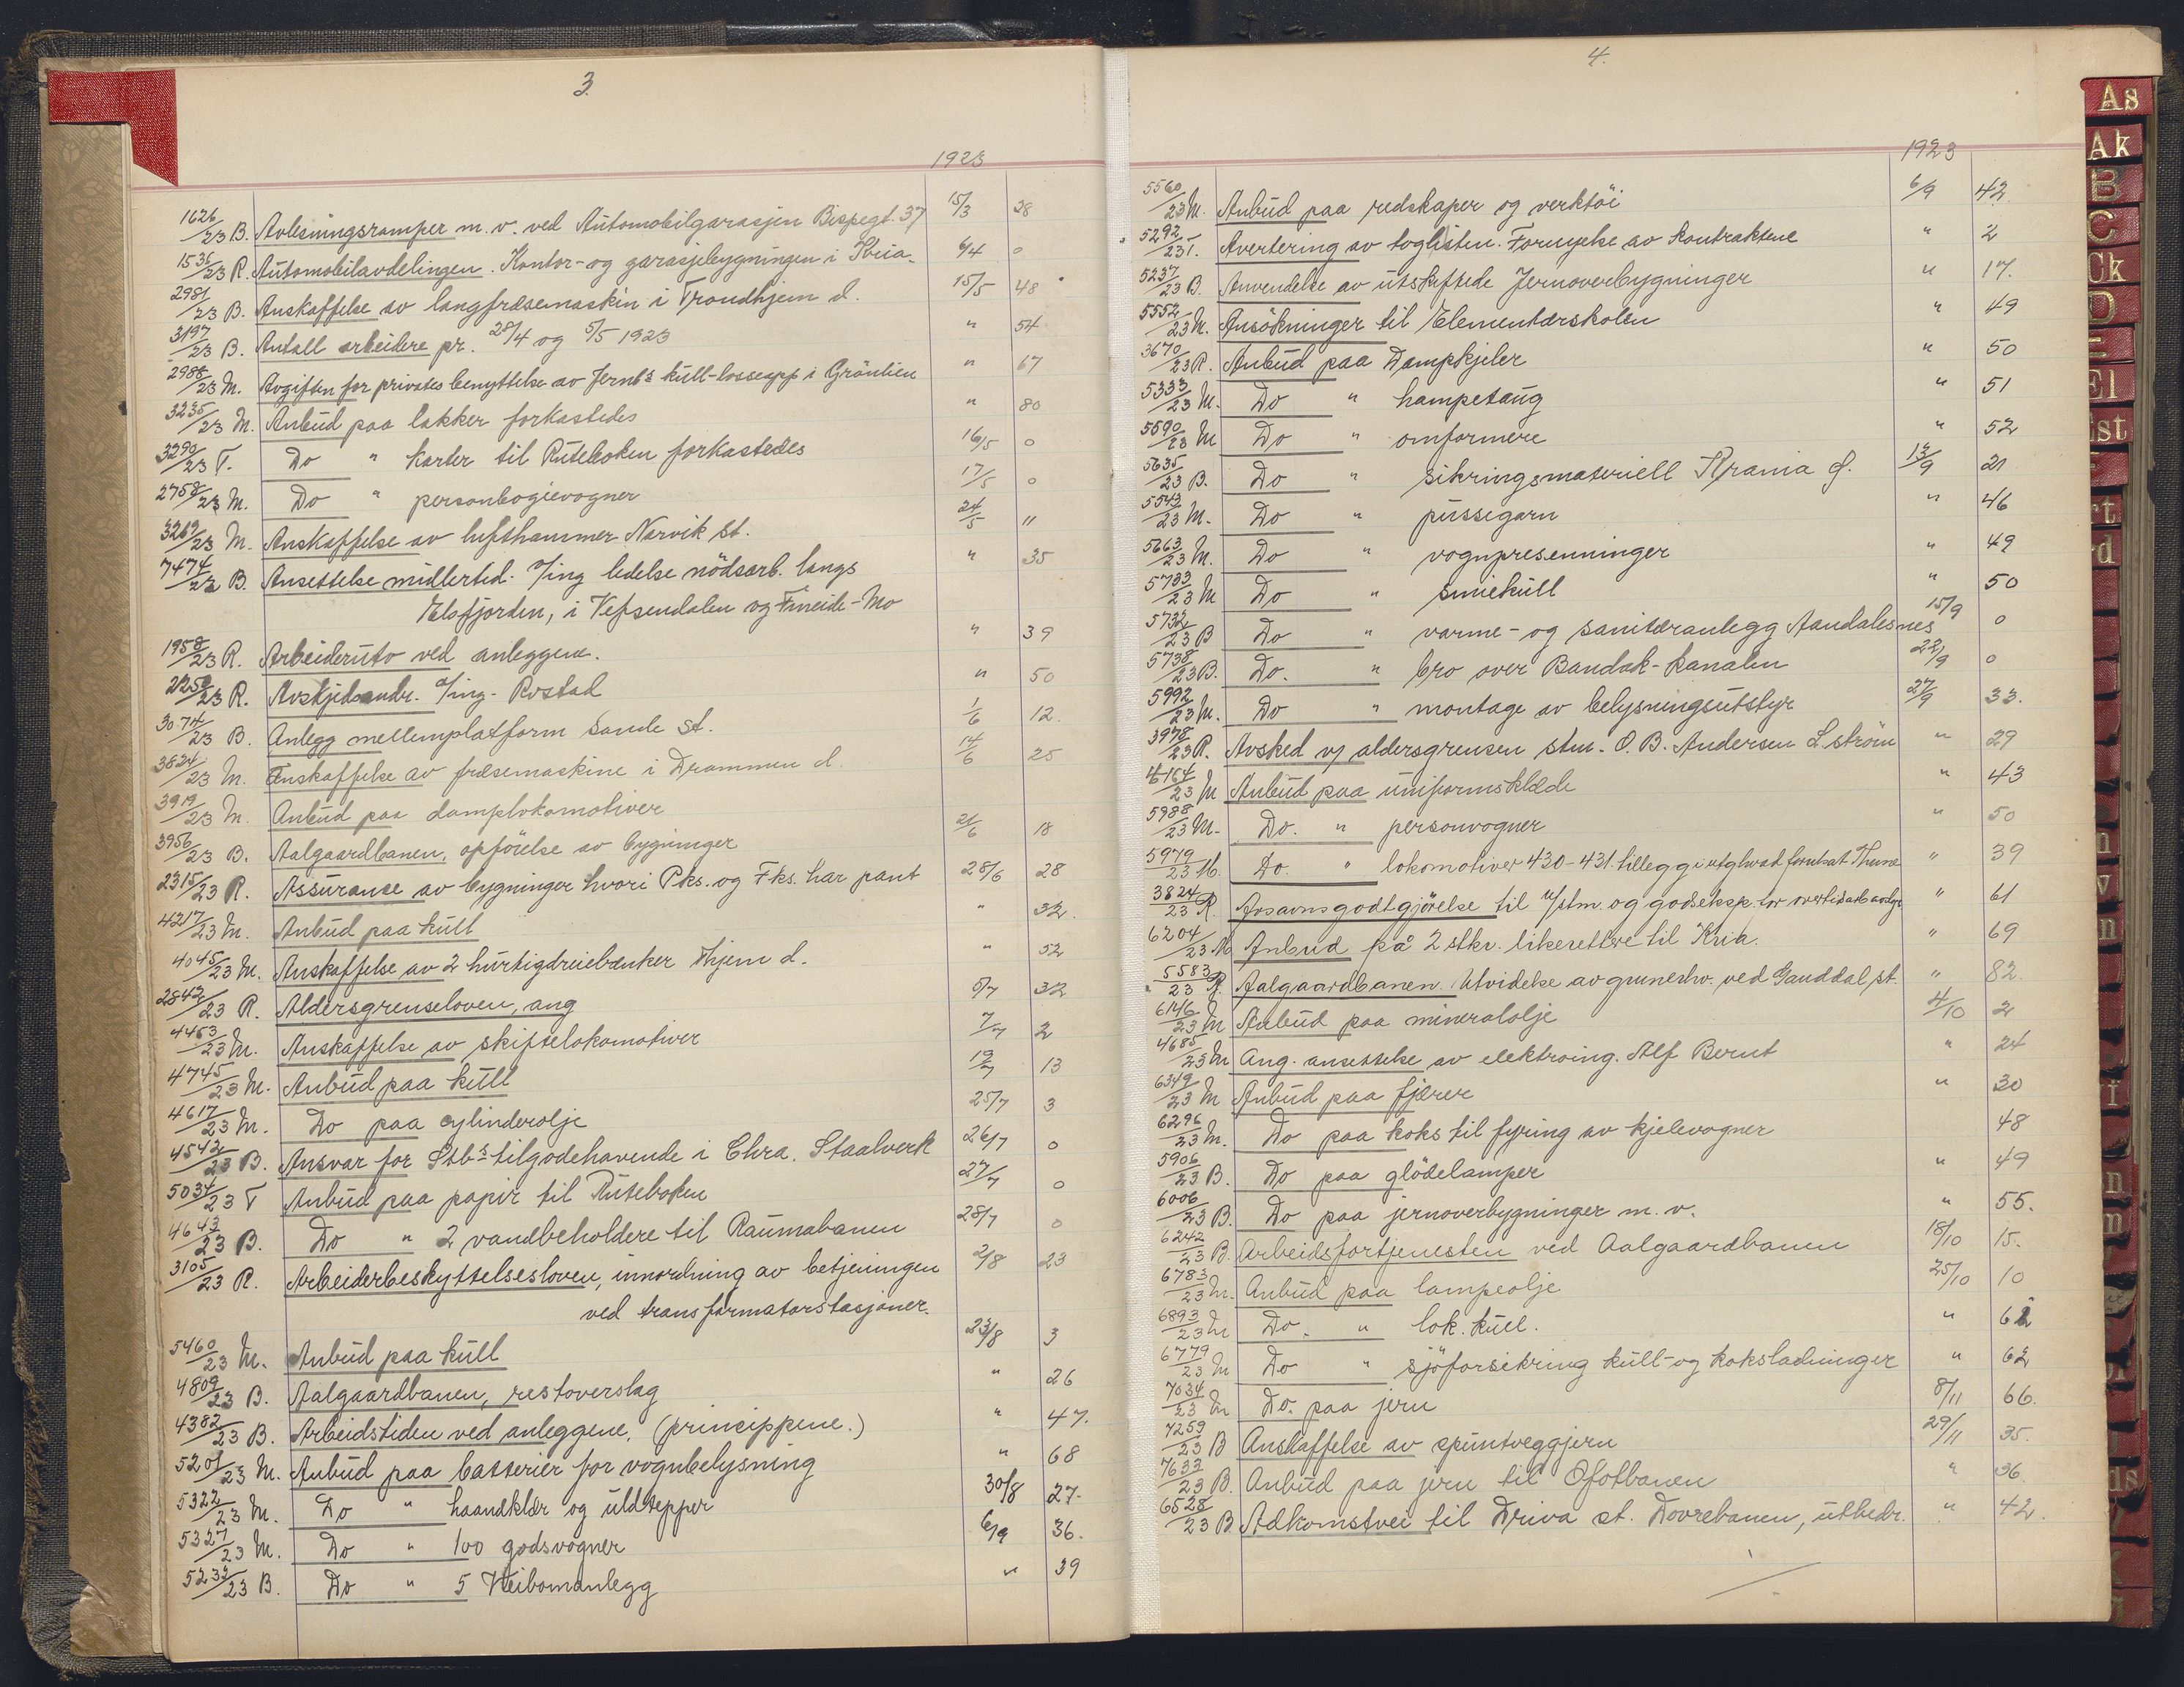 3.
1923
1626/23 B. Avlesningsramper m. v. ved Automobilgarasjen Bispegt. 37 15/3 28
1535/23 R. Automobilavdelingen. Kontor- og garasjebygningen i Kria. 6/4 0
2981/23 B. Anskaffelse av langfræsemaskin i Trondhjem d. 15/5 48
3197/23 B. Antall arbeidere pr. 28/4 og 5/5 1923 " 54
2988/23 M. Avgiften for privates benyttelse av Jernb's kull-losseapp i Grönlien " 67
3235/23 M. Anbud paa lakker forkastedes " 80
3290/23 T. Do " karter til Ruteboken forkastedes 16/5 0
2758/23 M. Do " personbogievogner 17/5 0
3269/23 M. Anskaffelse av lufthammer Narvik st. 24/5 11
7474/22 B. Ansettelse midlertid. a/ing ledelse nödsarb. langs " 35
Elsfjorden, i Vefsendalen og Finneide-Mo
1958/23 R. Arbeideruto ved anleggene. " 39
2250/23 R. Avskjedsandr. a/ing. Rostad " 50
3074/23 B. Anlegg mellemplatform Sande St. 1/6 12.
3824/23 M. Anskaffelse av fræsemaskine i Drammen d. 14/6 25
3919/23 M. Anbud paa damplokomotiver
3956/23 B. Aalgaardbanen, opförelse av bygninger 21/6 18
2315/23 R. Assuranse av bygninger hvori Pks. og Fks. har pant 28/6 28
4217/23 M. Anbud paa kull " 32.
4045/23 M. Anskaffelse av 2 hurtigdreiebænker Thjem d. " 52
2842/23 R. Aldersgrenseloven, ang 5/7 32
4453/23 M. Anskaffelse av skiftelokomotiver 7/7 2
4745/23 M. Anbud paa kull 19/7 13
4617/23 M. Do paa cylinderolje 25/7 3
4542/23 B. Ansvar for Stb's tilgodehavende i Chra. Staalverk 26/7 0
5034/23 T Anbud paa papir til Ruteboken 27/7 0
4643/23 B. Do " 2 vandbeholdere til Raumabanen 28/7 0
3105/23 R. Arbeiderbeskyttelsesloven, innordning av betjeningen 2/8 23
ved transformatorstasjoner.
5460/23 M. Anbud paa kull 23/8 3
4809/23 B. Aalgaardbanen, restoverslag " 26
4382/23 B. Arbeidstiden ved anleggene. (princippene.) " 47.
5201/23 M. Anbud paa batterier for vognbelysning " 68
5322/23 M. Do " haandklær og uldtepper 30/8 27.
5327/23 M. Do " 100 godsvogner 6/9 36.
5232/23 B. Do " 5 Veibomanlegg " 39
4.
1923
5560/23 M. Anbud paa redskaper og verktöi 6/9 42
5292/23 T. Avertering av toglisten. Fornyelse av kontraktene " 2
5237/23 B. Anvendelse av utskiftede Jernoverbygninger " 17.
5552/23 M. Ansökninger til Elementærskolen " 49
3670/23 R. Anbud paa Dampkjeler " 50
5333/23 M. Do " hampetaug " 51
5590/23 M Do " omformere " 52
5635/23 B. Do " sikringsmateriell Krania d. 13/9 21
5543/23 M. Do " pussegarn " 46
5663/23 M. Do " vognpresenninger " 49
5733/23 M Do " smiekull " 50
5732/23 B Do " varme- og sanitæranlegg Aandalsnes 15/9 0
5738/23 B. Do. " bro over Bandak-kanalen 22/9 0
5992/23 M. Do " montage av belysningsutstyr 27/9 33.
3978/23 R. Avsked v/ aldersgrensen stm. O. B. Andersen L.ström " 29
4164/23 M Anbud paa uniformsklæde " 43
5988/23 M. Do. " personvogner " 50
5979/23 M. Do. " lokomotiver 430-431. tillegg i utgl. Thune " 39
3824/23 R. Avsavnsgodtgjörelse til u/stm. og godseksp. for " 61
6204/23 M Anbud på 2 stkr. likerettere til Kria. " 69
5583/23 R. Aalgaardbanen. Utvidelse av ved Ganddal st. " 82
6146/23 M Anbud paa mineralolje 4/10 2
4685/23 M Ang. ansettelse av elektroing. Alf Bernt " 24
6349/23 M Anbud paa fjærer " 30
6296/23 M. Do paa koks til fyring av kjelevogner 48
5906/23 B. Do paa glödelamper " 49
6006/23 B. Do paa jernoverbygninger m. v. " 55.
6242/23 B. Arbeidsfortjenesten ved Aalgaardbanen 18/10 15.
6783/23 M. Anbud paa lampeolje 25/10 10
6893/23 M Do. " lok. kull. " 61
6779/23 M Do " sjöforsikring kull- og koksladninger " 62
7034/23 M Do. paa jern 8/11 66.
7259/23 B Anskaffelse av spuntveggjern 29/11 35.
7633/23 B. Anbud paa jern til Ofotbanen " 36.
6528/23 B. Adkomstvei til Driva st. Dovrebanen, utbedr. " 42.
As
Ak
B
C
Ck
D
El